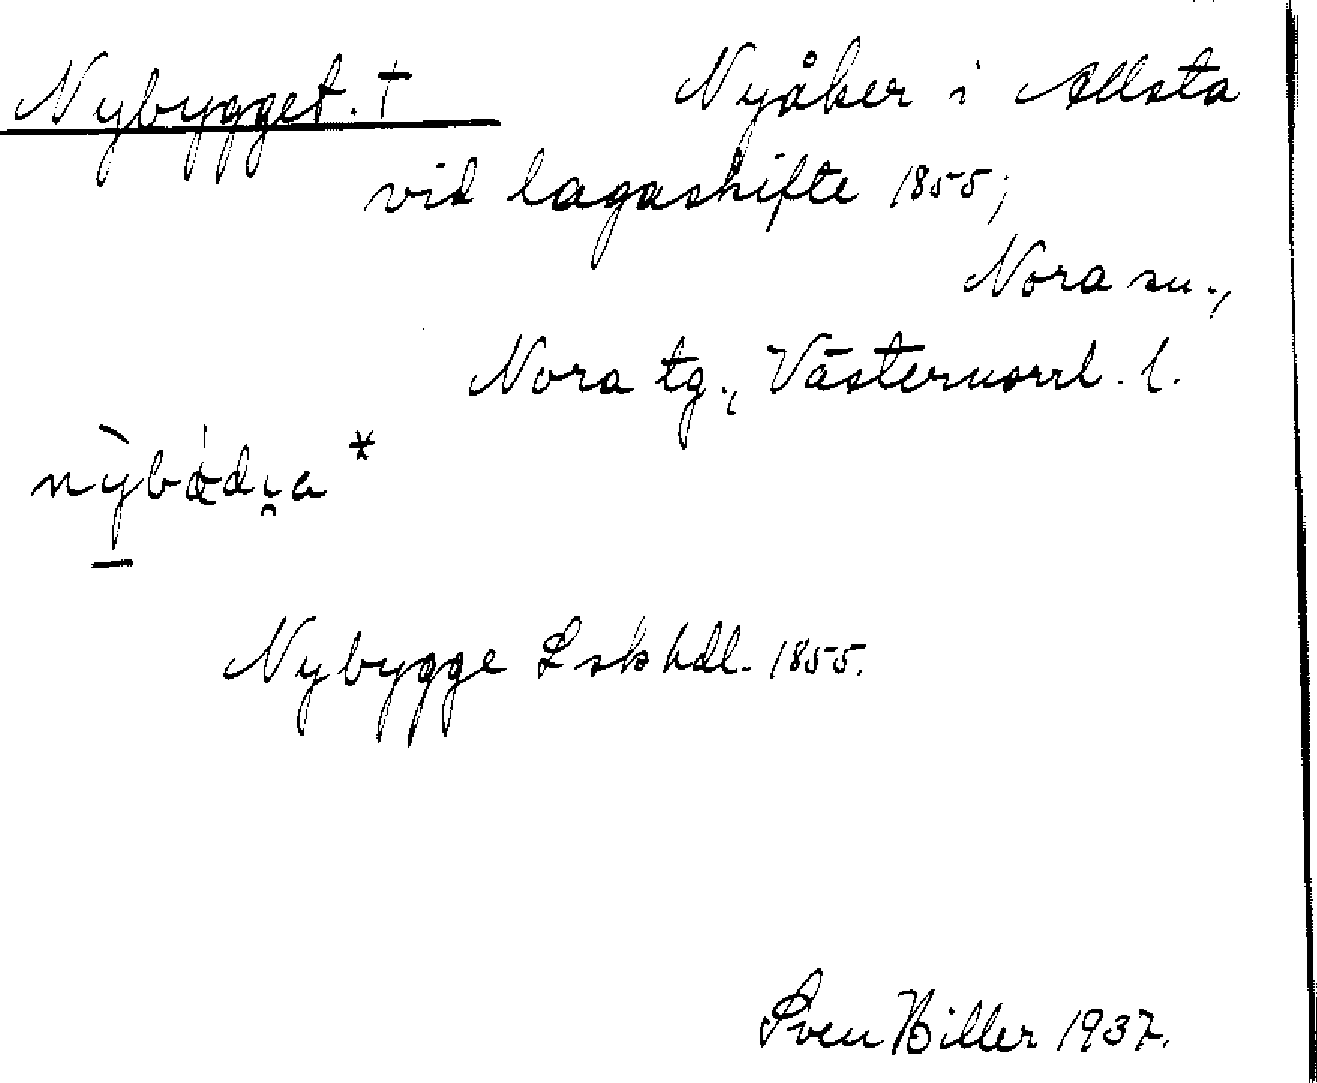 Nybygget. † Nyåker i Allsta
vid lagaskifte 1855;
Nora sn.,
Nora tg., Västernorrl. l.
Nybygge Lskhdl. 1855.
Sven Hiller 1937.